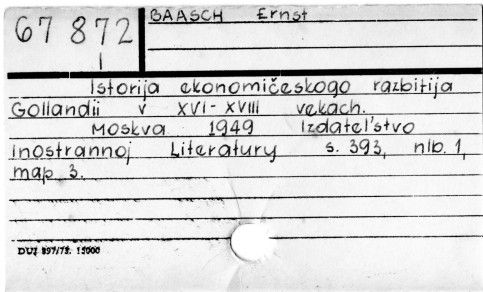 67 872
BAASCH Ernst
Istorija ekonomičeskogo razbitija
Gollandii v XVI-XVIII vekach.
Moskva 1949 Izdatel'stvo
Inostrannoj Literatury s. 393, nlb. 1,
map 3.
DUJ 897/78. 15000